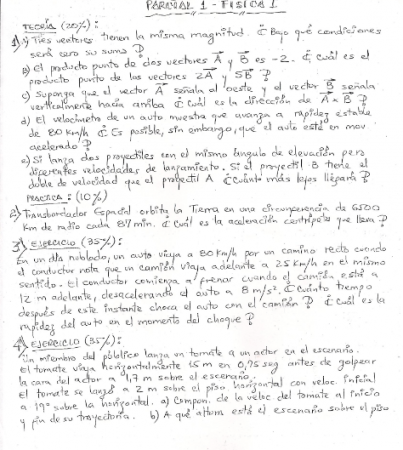 PARCIAL 1 - FISICA I
TEORÍA (20%):
1) a) Tres vectores tienen la misma magnitud. ¿ Bajo qué condiciones
será cero su suma ?
b) El producto punto de dos vectores A y B es -2. ¿ Cuál es el
producto punto de los vectores 2A y 5B ?
c) Suponga que el vector A señala al oeste y el vector B señala
verticalmente hacia arriba ¿ Cuál es la dirección de A × B ?
d) El velocímetro de un auto muestra que avanza a rapidez estable
de 80 km/h ¿ Es posible, sin embargo, que el auto esté en mov
acelerado ?
e) Si lanza dos proyectiles con el mismo ángulo de elevación pero
diferentes velocidades de lanzamiento. Si el proyectil B tiene el
doble de velocidad que el proyectil A ¿ Cuánto más lejos llegará ?
PRACTICA: (10%)
2) Transbordador Espacial orbita la Tierra en una circunferencia de 6500
Km de radio cada 87 min. ¿ Cuál es la aceleración centrípeta que lleva ?
3) EJERCICIO (35%):
En un día nublado, un auto viaja a 80 Km/h por un camino recto cuando
el conductor nota que un camión viaja adelante a 25 Km/h en el mismo
sentido. El conductor comienza a frenar cuando el camión está a
12 m adelante, desacelerando el auto a 8 m/s². ¿ Cuánto tiempo
después de este instante choca el auto con el camión ? ¿ Cuál es la
rapidez del auto en el momento del choque ?
4) EJERCICIO (35%):
Un miembro del público lanza un tomate a un actor en el escenario.
El tomate viaja horizontalmente 15 m en 0,75 seg antes de golpear
la cara del actor a 1,7 m sobre el escenario.
El tomate se lanzó a 2 m sobre el piso horizontal con veloc. inicial
a 19° sobre la horizontal. a) Compon. de la veloc. del tomate al inicio
y fin de su trayectoria. b) A qué altura está el escenario sobre el piso